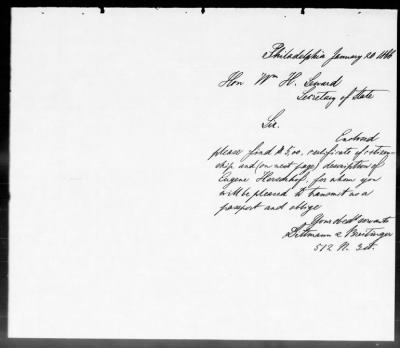 Philadelphia January 20 1866
Hon Wm H. Seward
Secretary of State
Sir.
Enclosed
please find $5,00, certificate of citizen-
ship and (on next page) description of
Eugene for whom you
will be pleased to transmit us a
passport and oblige
Your obedt servants
Dittmann &
512 N. 3 St.